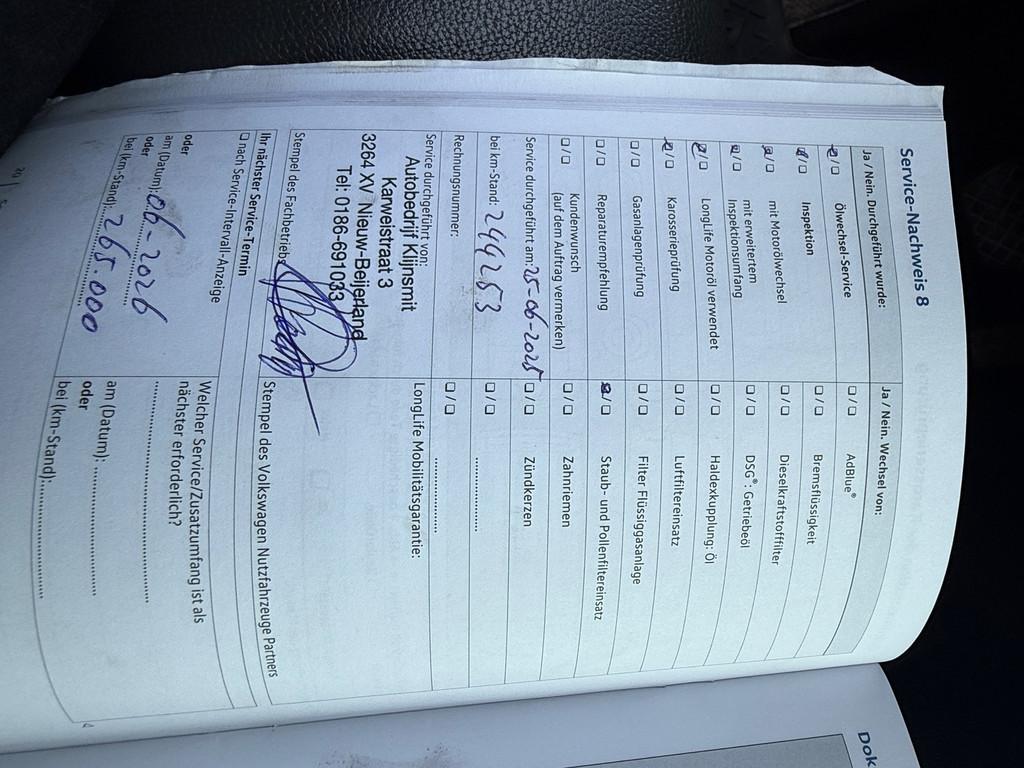 Service-Nachweis 8
Ja / Nein. Durchgeführt wurde:
☒/☐ Ölwechsel-Service
☒/☐ Inspektion
☒/☐ mit Motorölwechsel
☒/☐ mit erweitertem
Inspektionsumfang
☒/☐ LongLife Motoröl verwendet
☒/☐ Karosserieprüfung
☐/☐ Gasanlagenprüfung
☐/☐ Reparaturempfehlung
☐/☐ Kundenwunsch
(auf dem Auftrag vermerken)
Service durchgeführt am: 25-06-2025
bei km-Stand: 249253
Rechnungsnummer:
Service durchgeführt von:
Autobedrijf Klijnsmit
Karweistraat 3
3264 XV Nieuw-Beijerland
Tel: 0186-691033
Stempel des Fachbetriebs
Ja / Nein. Wechsel von:
☐/☐ AdBlue®
☐/☐ Bremsflüssigkeit
☐/☐ Dieselkraftstofffilter
☐/☐ DSG®: Getriebeöl
☐/☐ Haldexkupplung: Öl
☐/☐ Luftfiltereinsatz
☐/☐ Filter Flüssiggasanlage
☒/☐ Staub- und Pollenfiltereinsatz
☐/☐ Zahnriemen
☐/☐ Zündkerzen
☐/☐ ..............
☐/☐ ..............
LongLife Mobilitätsgarantie:
Stempel des Volkswagen Nutzfahrzeuge Partners
Ihr nächster Service-Termin
☐ nach Service-Intervall-Anzeige
oder
am (Datum): 06-2026
oder
bei (km-Stand): 265.000
Welcher Service/Zusatzumfang ist als
nächster erforderlich?
..............
am (Datum): ..............
oder
bei (km-Stand): ..............
Dok